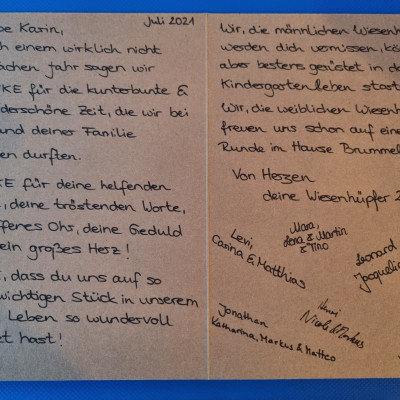 Juli 2021
be Karin,
ch einem wirklich nicht
achen Jahr sagen wir
KE für die kunterbunte &
derschöne Zeit, die wir bei
und deiner Familie
en durften.
KE für deine helfenden
, deine tröstenden Worte,
ffenes Ohr, deine Geduld
ein großes Herz!
, dass du uns auf so
wichtigen Stück in unserem
Leben so wundervoll
et hast!
Wir, die männlichen Wiesenh
werden dich vermissen, kö
aber bestens gerüstet in d
Kindergartenleben start
Wir, die weiblichen Wiesenh
freuen uns schon auf eine
Runde im Hause Brummel
Von Herzen
deine Wiesenhüpfer 2
Levi,
Carina & Matthias
Mara,
Lena & Martin
& Tino
Leonard
Jacqueli
Jonathan
Katharina, Markus & Matteo